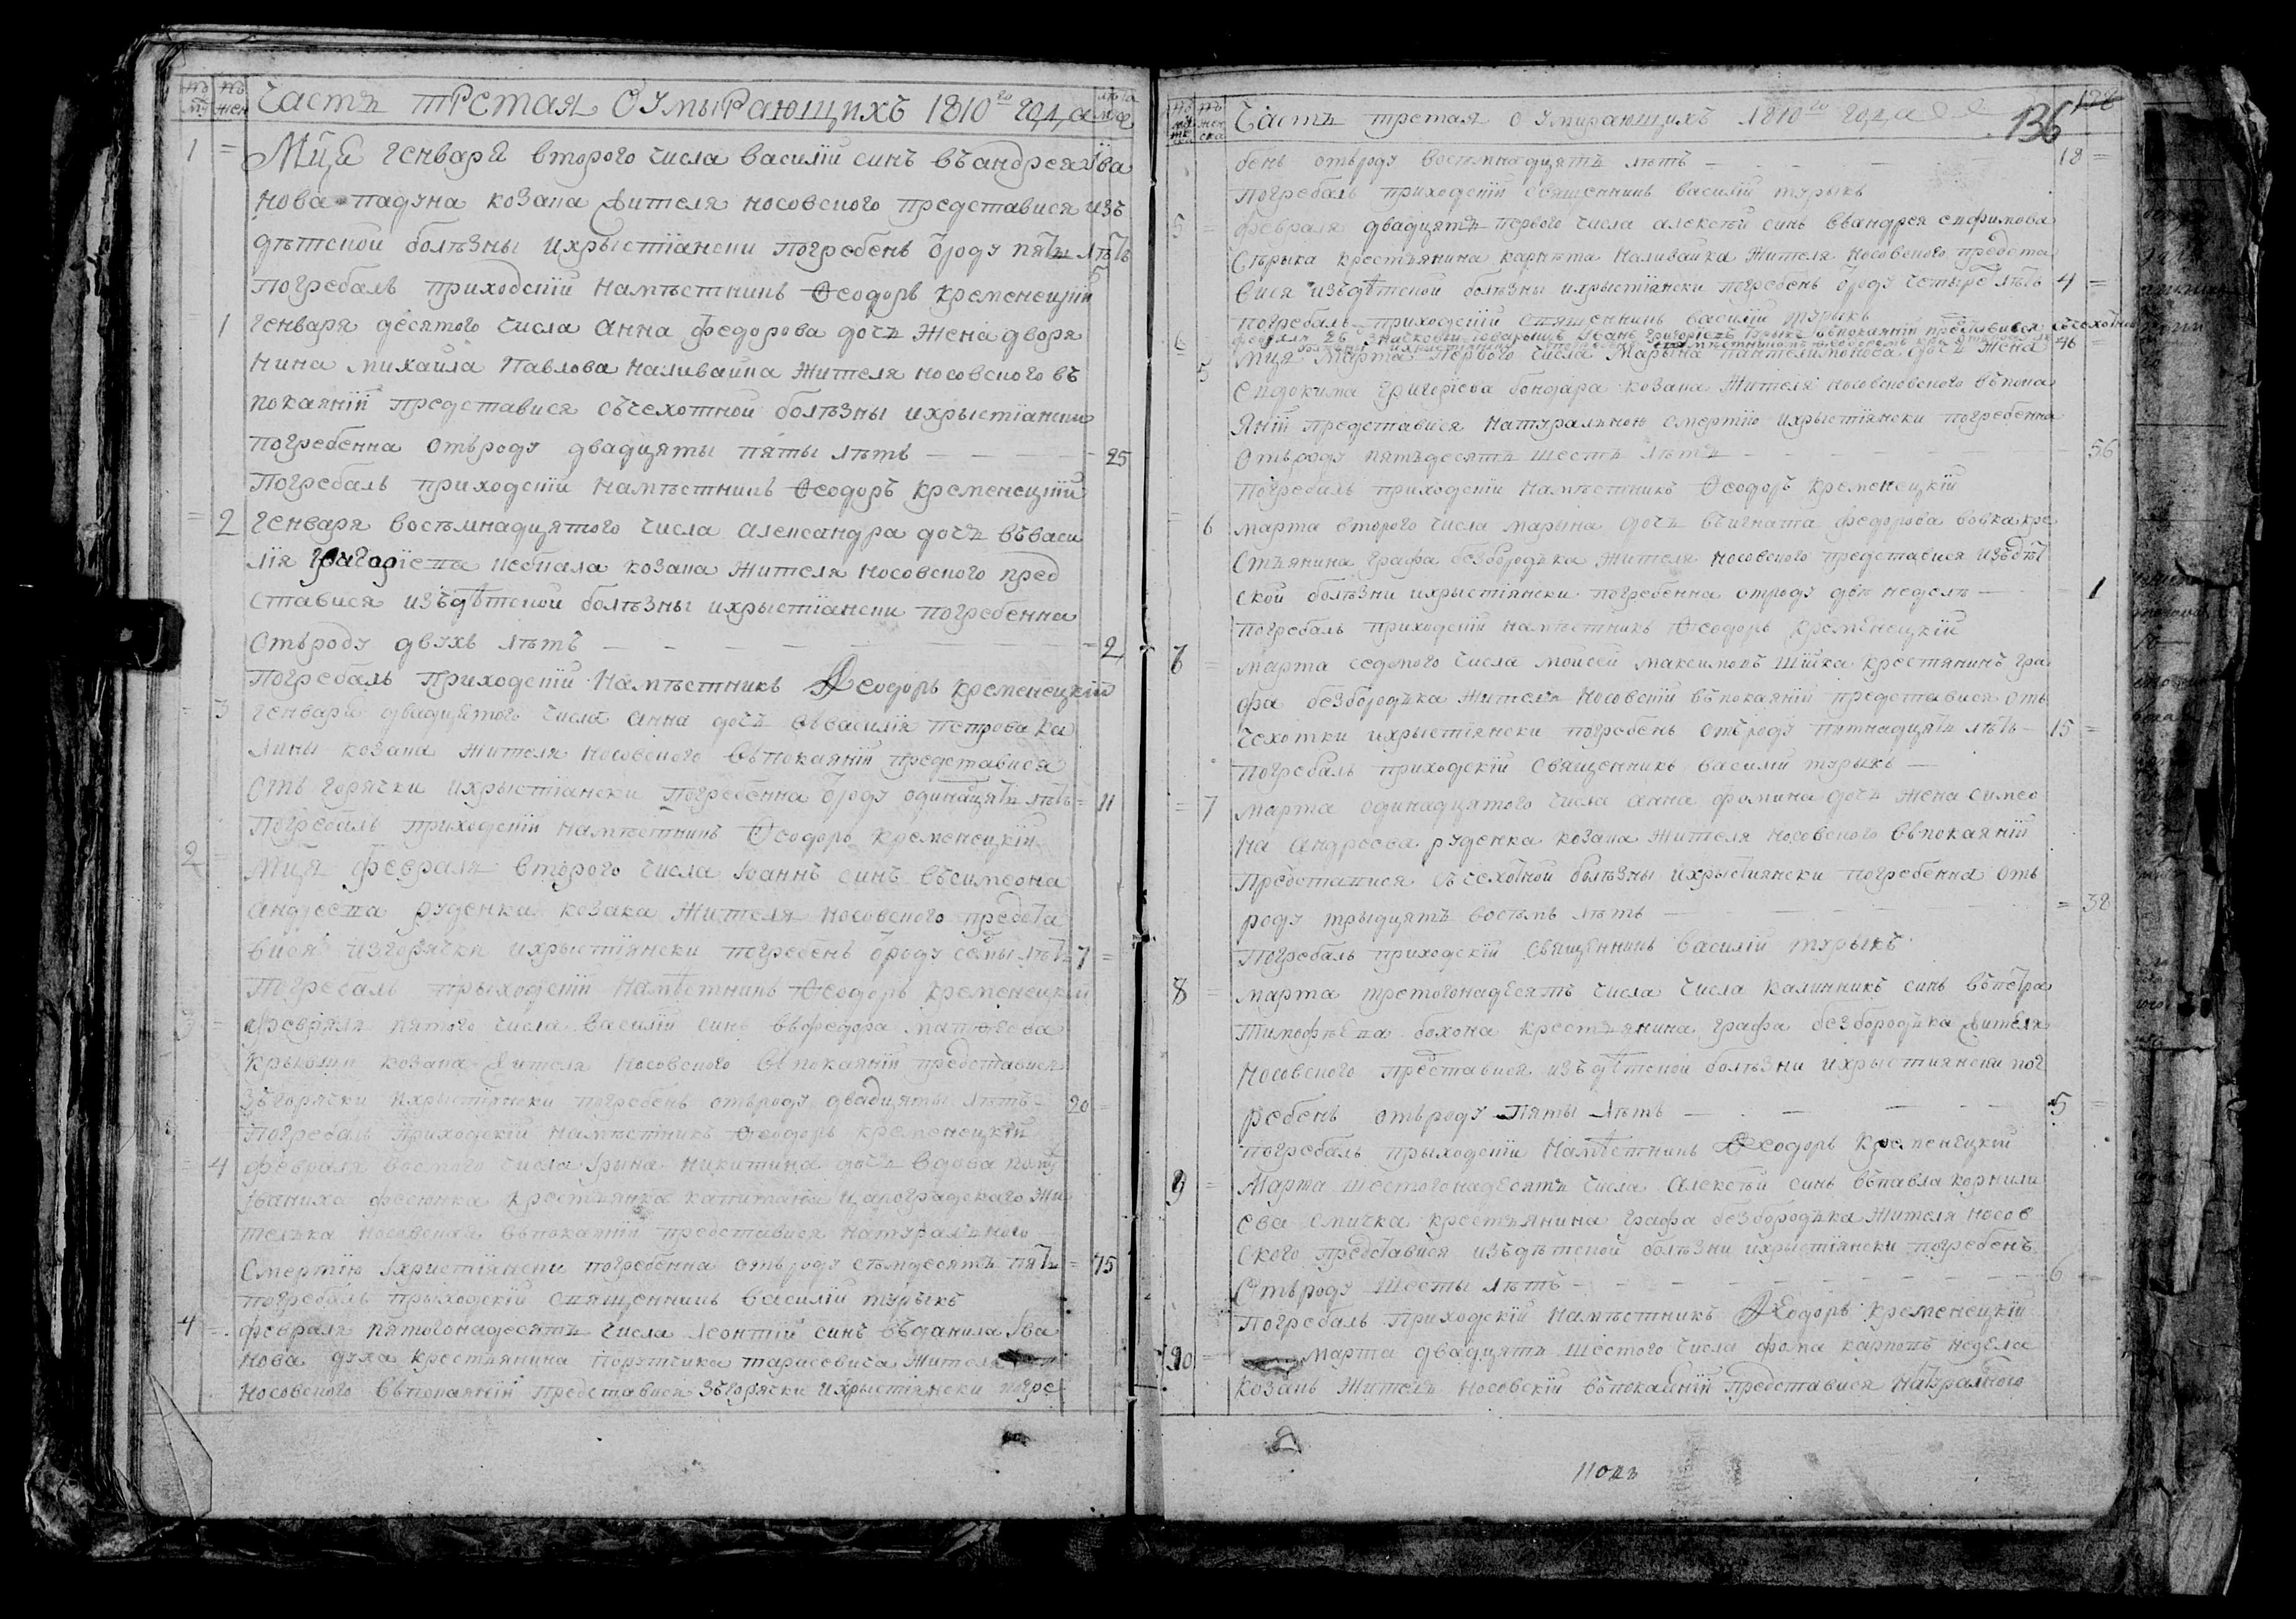 Часть третая О Умырающихъ 1810го года лѣта
1 = Мца генваря второго числа василий синъ въандрея Ива
нова падуна козака жителя носовского представися изъ
дѣтской болѣзны ихрыстіански погребенъ ѿроду пять лѣтъ
Погребалъ приходскій намѣстникъ Ѳеодоръ кременецкій
1 генваря десятого числа анна федорова дочь жена дворя
нина михаила Павлова наливайка жителя носовского въ
покаяніи представися съчехотной болѣзны ихрыстіански
погребенна отъроду двадцяты пяты лѣтъ — — — 25
Погребалъ приходскій намѣстникъ Ѳеодоръ кременецкій
= 2 генваря восѣмнадцятого числа александра дочь въваси
лія григоріева козака жителя носовского пред
ставися изъдѣтской болѣзны ихрыстіански погребенна
отъроду двухъ лѣтъ — — — — = 2
Погребалъ Приходскій Намѣстникъ Ѳеодоръ кременецкій
= 3 генваря двадцятого числа анна дочь въвасилія петрова ка
лины козака жителя носовского въпокаяніи представися
отъ горячки ихрыстіански погребенна ѿроду одинадцять лѣтъ = 11
Погребалъ приходскій намѣстникъ Ѳеодоръ кременецкій
2 = Мця февраля второго числа Іоаннъ синъ въсимеона
андреева руденка козака жителя носовского предста
вися изгорячки ихрыстіянски погребенъ ѿроду семы лѣтъ 7 =
Погребалъ прыходскій намѣстникъ Ѳеодоръ кременецкій
3 = февраля пятого числа василій синъ въфедора
козака жителя носовского въпокаяніи представися
зъгорячки ихрыстіянски погребенъ отъроду двадцяты лѣтъ 20 =
Погребалъ приходскій намѣстникъ Ѳеодоръ кременецкій
= 4 февраля восмого числа Ірина никитина дочь вдова
Іваниха крестьянка капитана цароградскаго жи
телька носовская въпокаяніи представися натуральною
смертію Іхристіянски погребенна отъроду сѣмдесятъ пять = 75
погребалъ прыходскій священникъ василій турыкъ
4 = февраля пятогонадесять числа леонтій синъ въданила Ива
нова духа крестьянина поручика тарасевича жителя
носовского въпокаяніи представися зъгорячки ихрыстіянски погре

Часть третая о умирающихъ 1810го года 136
бенъ отъроду восемнадцять лѣтъ — — — 18 =
погребалъ приходскій священникъ василій турыкъ
5 = февраля двадцять первого числа алексѣй синъ въандрея ефимова
крестьянина корнѣта наливайка жителя носовского предста
вися изъдѣтской болѣзны ихрыстіянски погребенъ ѿроду четыре лѣтъ 4 =
погребалъ приходскій священникъ василій турыкъ
6 = февраля 26 товарищъ Іоанъ Григоріевъ въпокаяніи представися съчехотной 46 =
5 мця марта первого числа марына пантелимонова дочь жена
евдокима григоріева бондара козака жителя носовского въпока
яніи представися натуральною смертію ихрыстіянски погребенна
отъроду пятьдесятъ шесть лѣтъ — — 56
Погребалъ приходскій намѣстникъ Ѳеодоръ кременецкій
= 6 марта второго числа марына дочь въигната федорова вовка кре
стьянина графа безбородька жителя носовского представися изъдѣт
ской болѣзни ихрыстіянски погребенна отроду двѣ неделѣ — 1
Погребалъ приходскій намѣстникъ Ѳеодоръ кременецкій
7 = марта седмого числа моисей максимовъ шійка крестянинъ гра
фа безбородька жителя носовскій въпокаяніи представися отъ
чехотки ихрыстіянски погребенъ отъроду пятнадцять лѣтъ — 15 =
погребалъ приходскій священникъ василій турыкъ —
= 7 марта одинадцятого числа анна фомина дочь жена симео
на андреева руденка козака жителя носовского въпокаяніи
Представися съчехотной болѣзны ихрыстиянски погребенна отъ
роду трыдцять восемъ лѣтъ — — = 38
Погребалъ приходскій священникъ василій турыкъ
8 = марта третогонадесять числа числа калинникъ синъ въпетра
тимофѣева бохона крестьянина графа безбородька жителя
носовского преставися изъдѣтской болѣзни ихрыстиянски пог
ребенъ отъроду пяты лѣтъ — — — 5 =
погребалъ прыходскій намѣстникъ Ѳеодоръ кременецкій
9 = Марта шестогонадесять числа алексѣй синъ въпавла корнили
ева смичка крестьянина графа безбородька жителя носов
ского представися изъдѣтской болѣзни ихрыстіянски погребенъ
отъроду шесты лѣтъ — — — 6
Погребалъ приходскій намѣстникъ Ѳеодоръ кременецкій
10 = марта двадцять шестого числа фома карповъ
козакъ жителя носовскій въпокаяніи представися натуральною